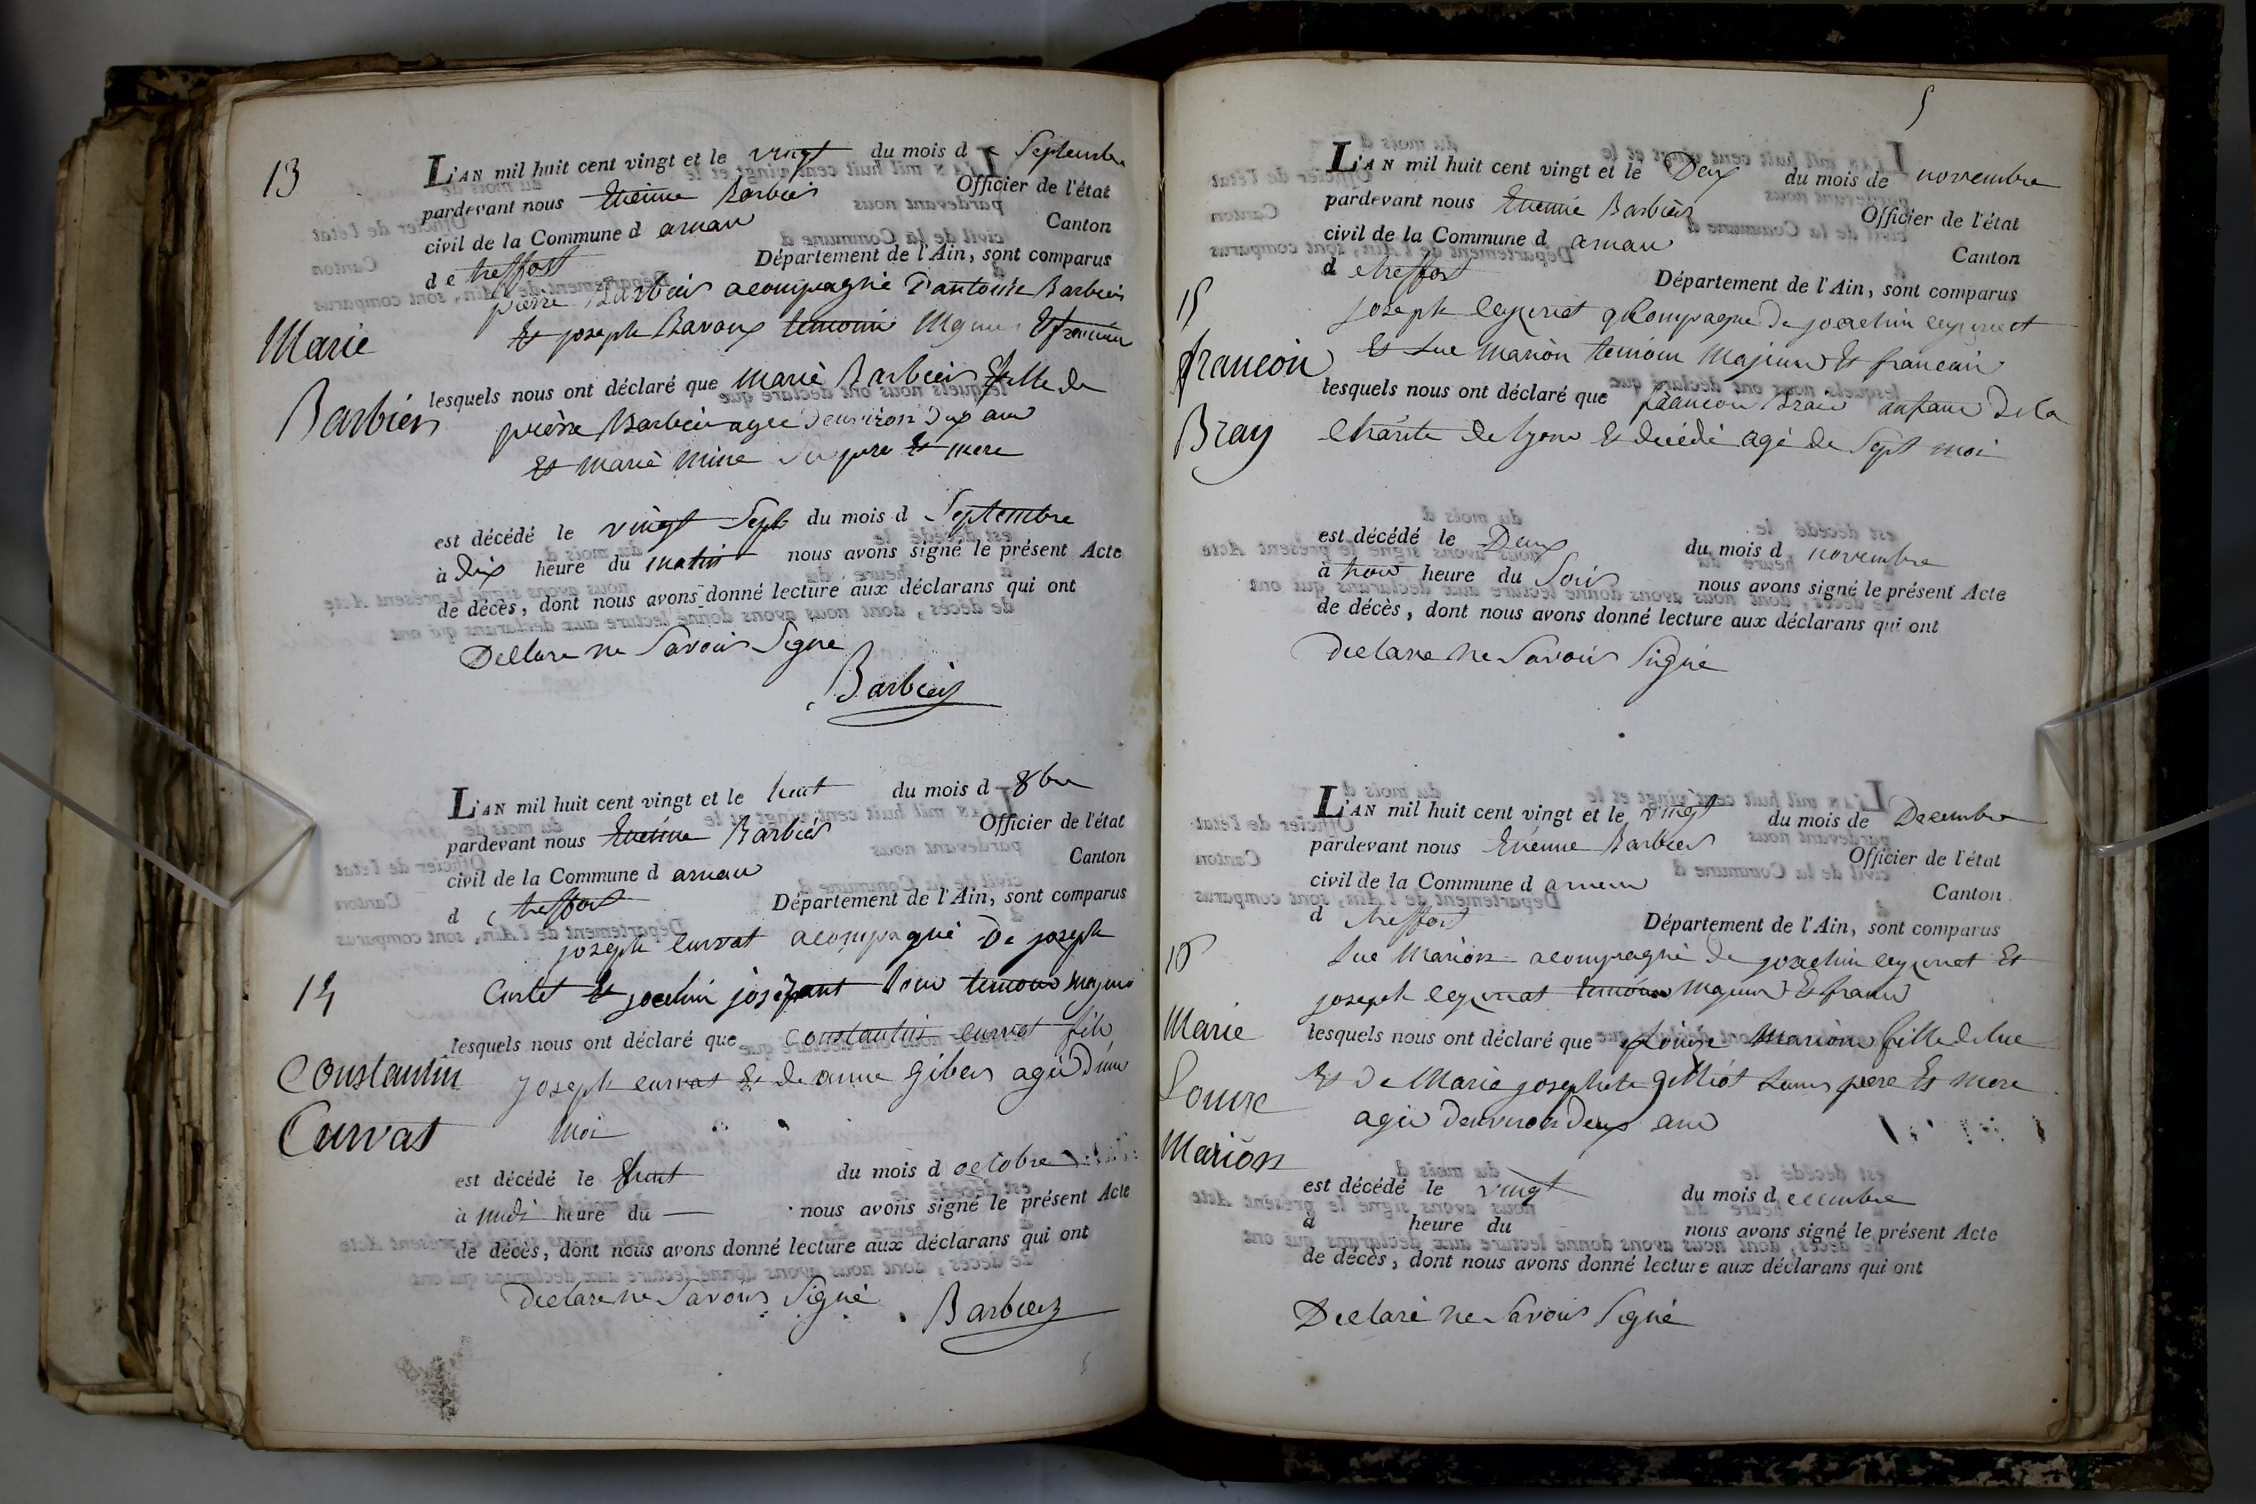 13
L'AN mil huit cent vingt et le vingt du mois d e Septembre
pardevant nous Etienne Barbier Officier de l'état
civil de la Commune d arnan Canton
d e treffort Département de l'Ain, sont comparus
pierre Barbier acompagné d'antoine Barbier
Et joseph Bavoux temoin Et francois
Marie
Barbier
lesquels nous ont déclaré que marie Barbier fille de
pierre Barbier agee d'environ dix ans
Et marie mine pere Et mere
est décédé le vingt Sept du mois d Septembre
à dix heure du matin nous avons signé le présent Acte
de décès, dont nous avons donné lecture aux déclarans qui ont
Declare ne Savoir Signe
Barbier
L'AN mil huit cent vingt et le huit du mois d 8bre
pardevant nous Etienne Barbier Officier de l'état
civil de la Commune d arnan Canton
d e treffort Département de l'Ain, sont comparus
joseph curvat acompagné De joseph
14
Carlet Et temoin
lesquels nous ont déclaré que constantin curvat fils
Constantin
Curvat
joseph curvat Et de anne giber agé D'un
moi
est décédé le huit du mois d octobre
à midi heure du — nous avons signé le présent Acte
de décès, dont nous avons donné lecture aux déclarans qui ont
Declare ne Savoir Signé
Barbier
5
L'AN mil huit cent vingt et le Deux du mois de novembre
pardevant nous Etienne Barbier Officier de l'état
civil de la Commune d arnan Canton
d e treffort Département de l'Ain, sont comparus
15
joseph acompagne De joachim
Et Luc Marion temoin Majeur Et francain
francoi
Bray
lesquels nous ont déclaré que francoi Bray anfant De la
Charite de lyon Et décédé agé de Sept moi
est décédé le Deux du mois d novembre
à trois heure du Soir nous avons signé le présent Acte
de décès, dont nous avons donné lecture aux déclarans qui ont
Declare ne Savoir Signé
L'AN mil huit cent vingt et le vingt du mois de Decembre
pardevant nous Etienne Barbier Officier de l'état
civil de la Commune d arnan Canton
d e treffort Département de l'Ain, sont comparus
16
Luc Marion acompagné de joachim Et
joseph temoin Majeur Et francai
Marie
Louise
Marion
lesquels nous ont déclaré que Louise Marion fille de luc
Et De Marie josephete gilliot Leurs pere Et Mere
agée D'environ Deux ans
est décédé le vingt du mois d ecembre
à heure du nous avons signé le présent Acte
de décès, dont nous avons donné lecture aux déclarans qui ont
Declare ne Savoir Signé